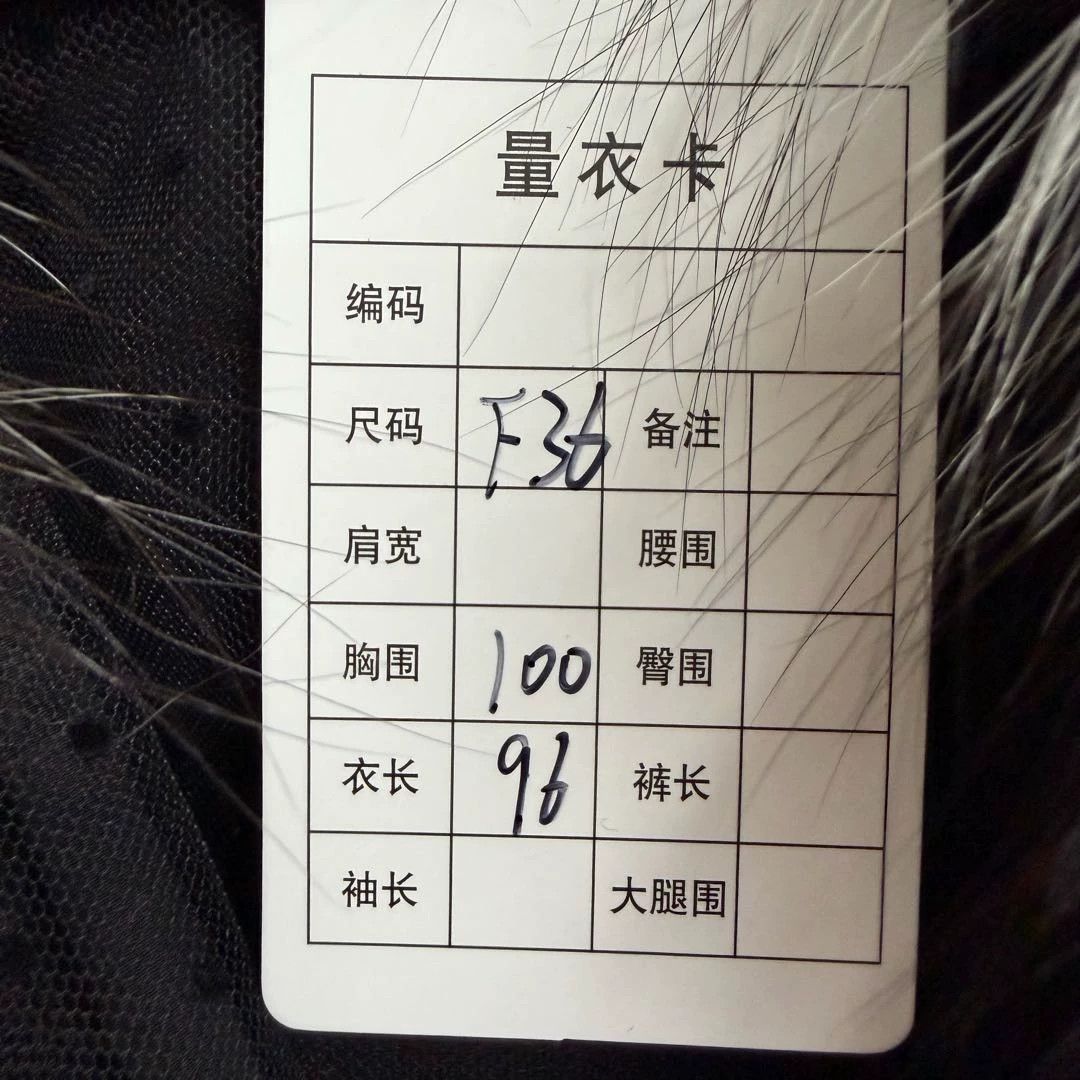 量衣卡
编码
尺码 F36 备注
肩宽 腰围
胸围 100 臀围
衣长 96 裤长
袖长 大腿围